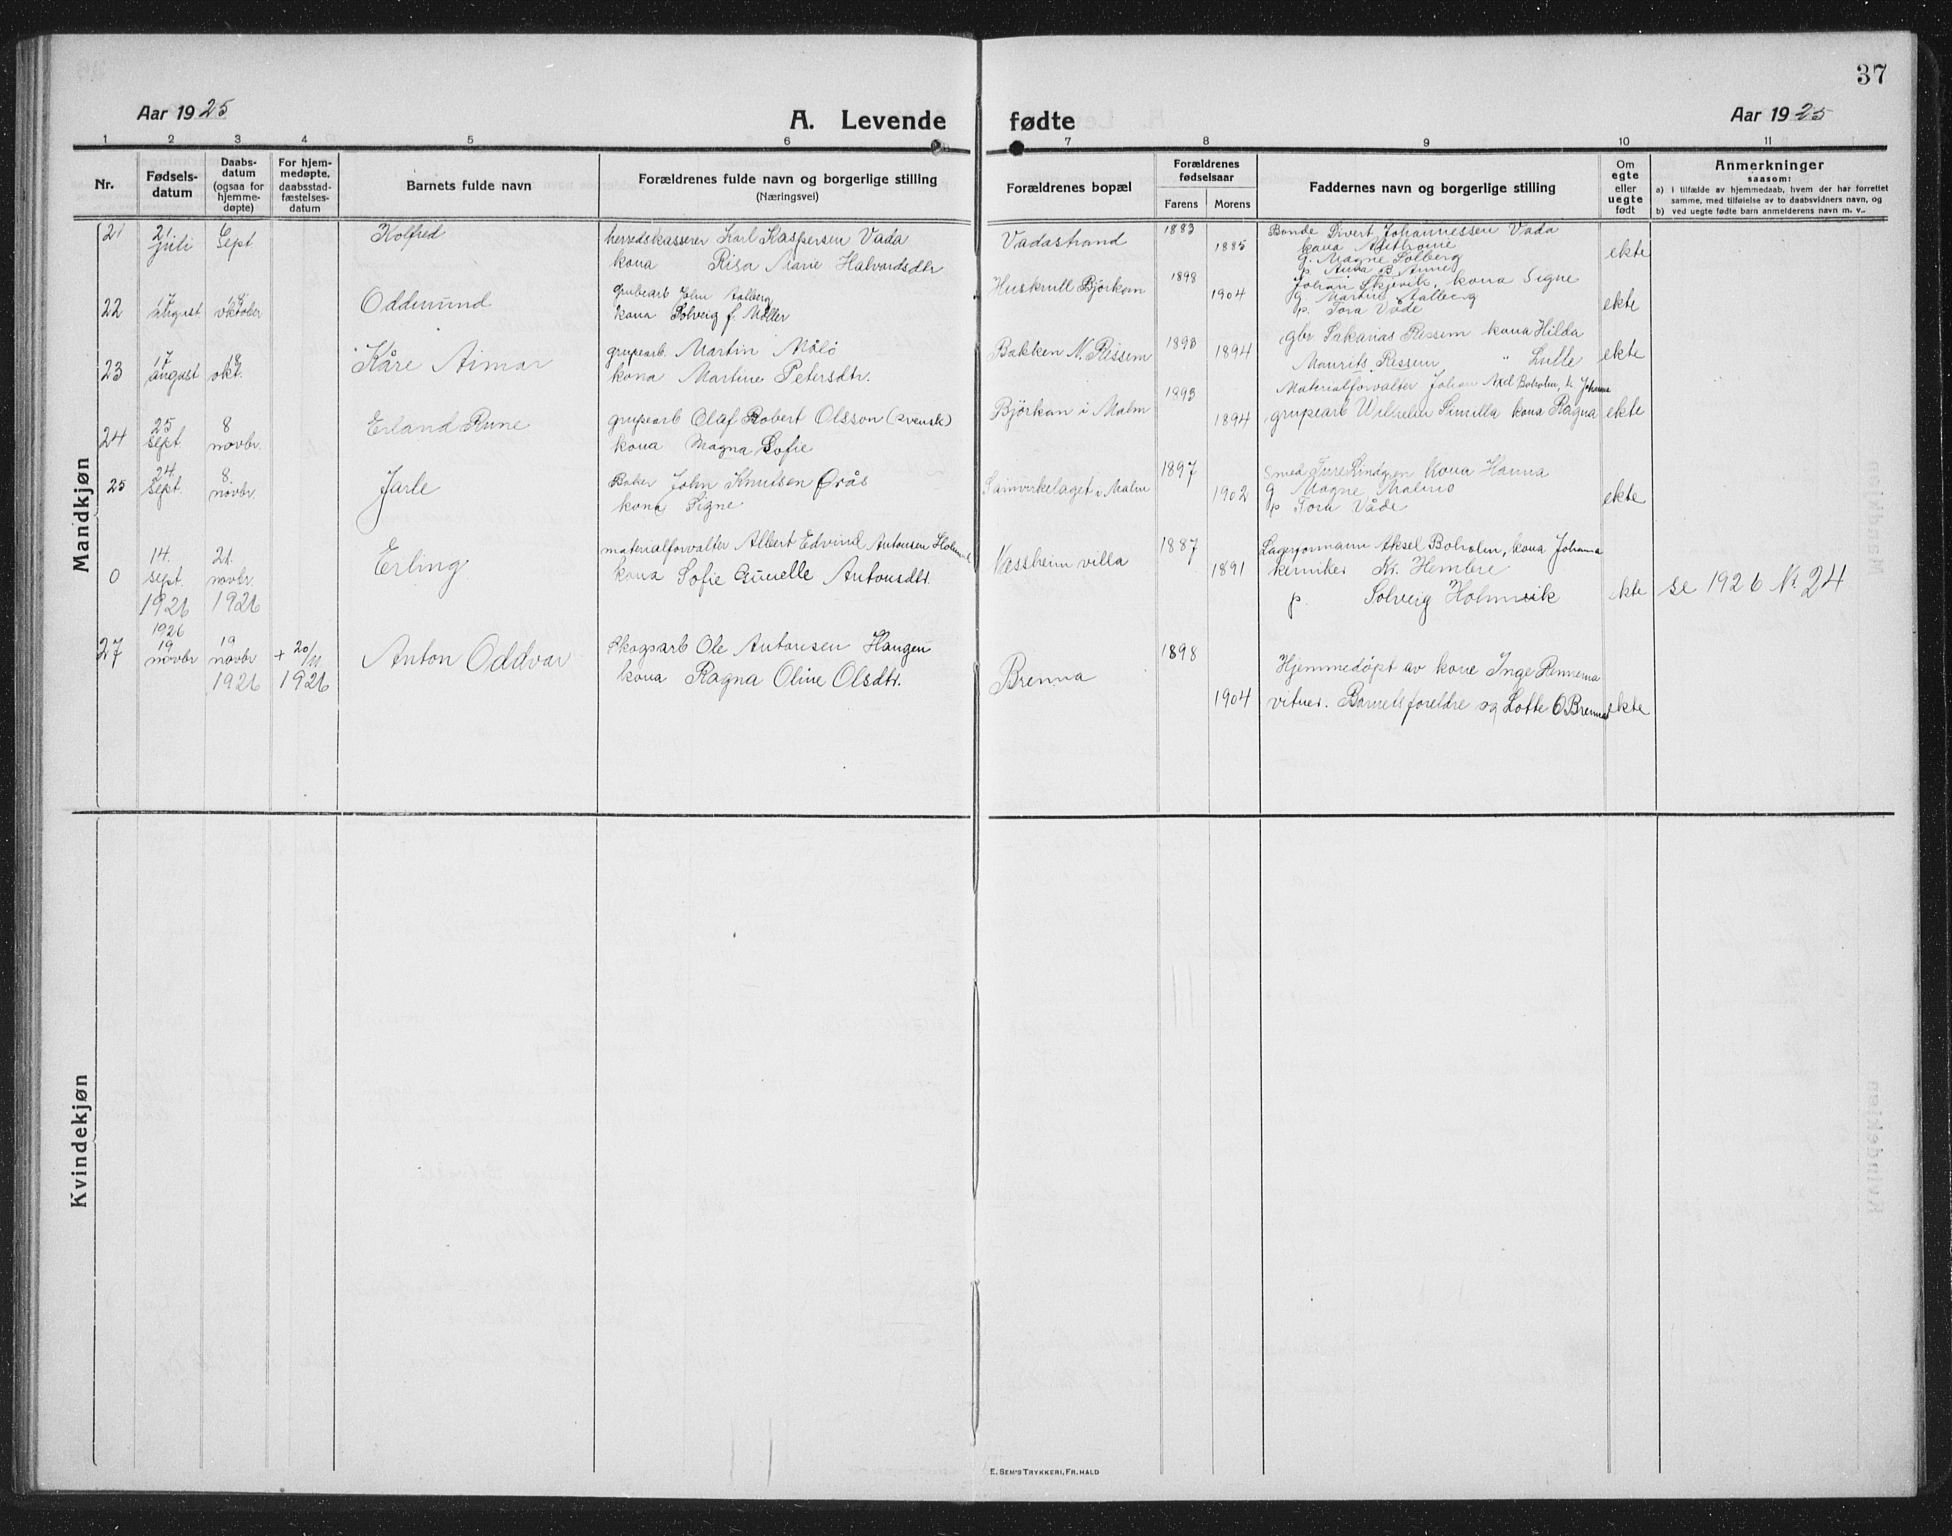 37
Aar 1925
A. Levende
fødte
Aar 1925
1 2 3 4 5 6 7 8 9 10 11
Nr.
Fødsels-
datum
Daabs-
datum
(ogsaa for
hjemme-
døpte)
For hjem-
medøpte,
daabsstad-
fæstelses-
datum
Barnets fulde navn
Forældrenes fulde navn og borgerlige stilling
(Næringsvei)
Forældrenes bopæl
Forældrenes
fødselsaar
Farens Morens
Faddernes navn og borgerlige stilling
Om
egte
eller
uegte
født
Anmerkninger
saasom:
a) i tilfælde av hjemmedaab, hvem der har forrettet
samme, med tilføielse av to daabsvidners navn, og
b) ved uegte fødte barn anmelderens navn m. v..
Mandkjøn
21
21
juli
6
Sept
Kolfred
herredskasserer Karl Kaspersen Vada
kona Risa Marie Halvardsdtr
Vadastrand
1883
1885
Bonde Sivert Johannessen Vada
kona
g. Magne Solberg
p. Anna B.
ekte
22
17
august
oktober
Oddmund
grubearb John Aalberg
kona Solveig f. Möller
Huskrull Björkan
1898
1904
Johan Skjevik, kona Signe
g. Martin Aalberg
p. Tora Våde
ekte
23
17
august
18
okt.
Kåre Aimar
grupearb. Martin Målö
kona Martine Petersdtr.
Bakken N. Rissem
1893
1894
gbr Sakarias Rissem kona Hilda
Maurits Rissem " Lulle
ekte
24
25
sept
8
novbr.
Erland Rune
grupearb Olaf Robert Olsson (svensk)
kona Magna Sofie
Björkan i Malm
1893
1894
Materialforvalter Johan Axel Boholm, k. Johanna
grupearb Wilhelm Similla kona Ragna
ekte
25
24
sept.
8
novbr.
Jarle
Baker John Knutsen Ørås
kona Signe
Samvirkelaget i Malm
1897
1902
Smed Ture Lindgren kona Hanna
g Magne Malmo
p Tora Våde
ekte
0
14.
sept.
1926
21.
novbr.
1926
Erling
materialforvalter Albert Edvind Antonsen
kona Sofie Gunelle Antonsdtr.
Vassheim villa
1887
1891
Lagerformann Aksel Boholm, kona Johanna
kemiker Kr. Hembre
p. Solveig Holmvik
ekte
se 1926 Nr 24
27
1926
19
novbr
19
novbr
1926
+ 20/11
1926
Anton Oddvar
Skogsarb Ole Antonsen Haugen
kona Ragna Oline Olsdtr.
Brenna
1898
1904
Hjemmedöpt av kone Inge
vitner. Barnets foreldre og Lotte O. Brenna
ekte
Kvindekjøn
E. Sem's Trykkeri, Fr.hald